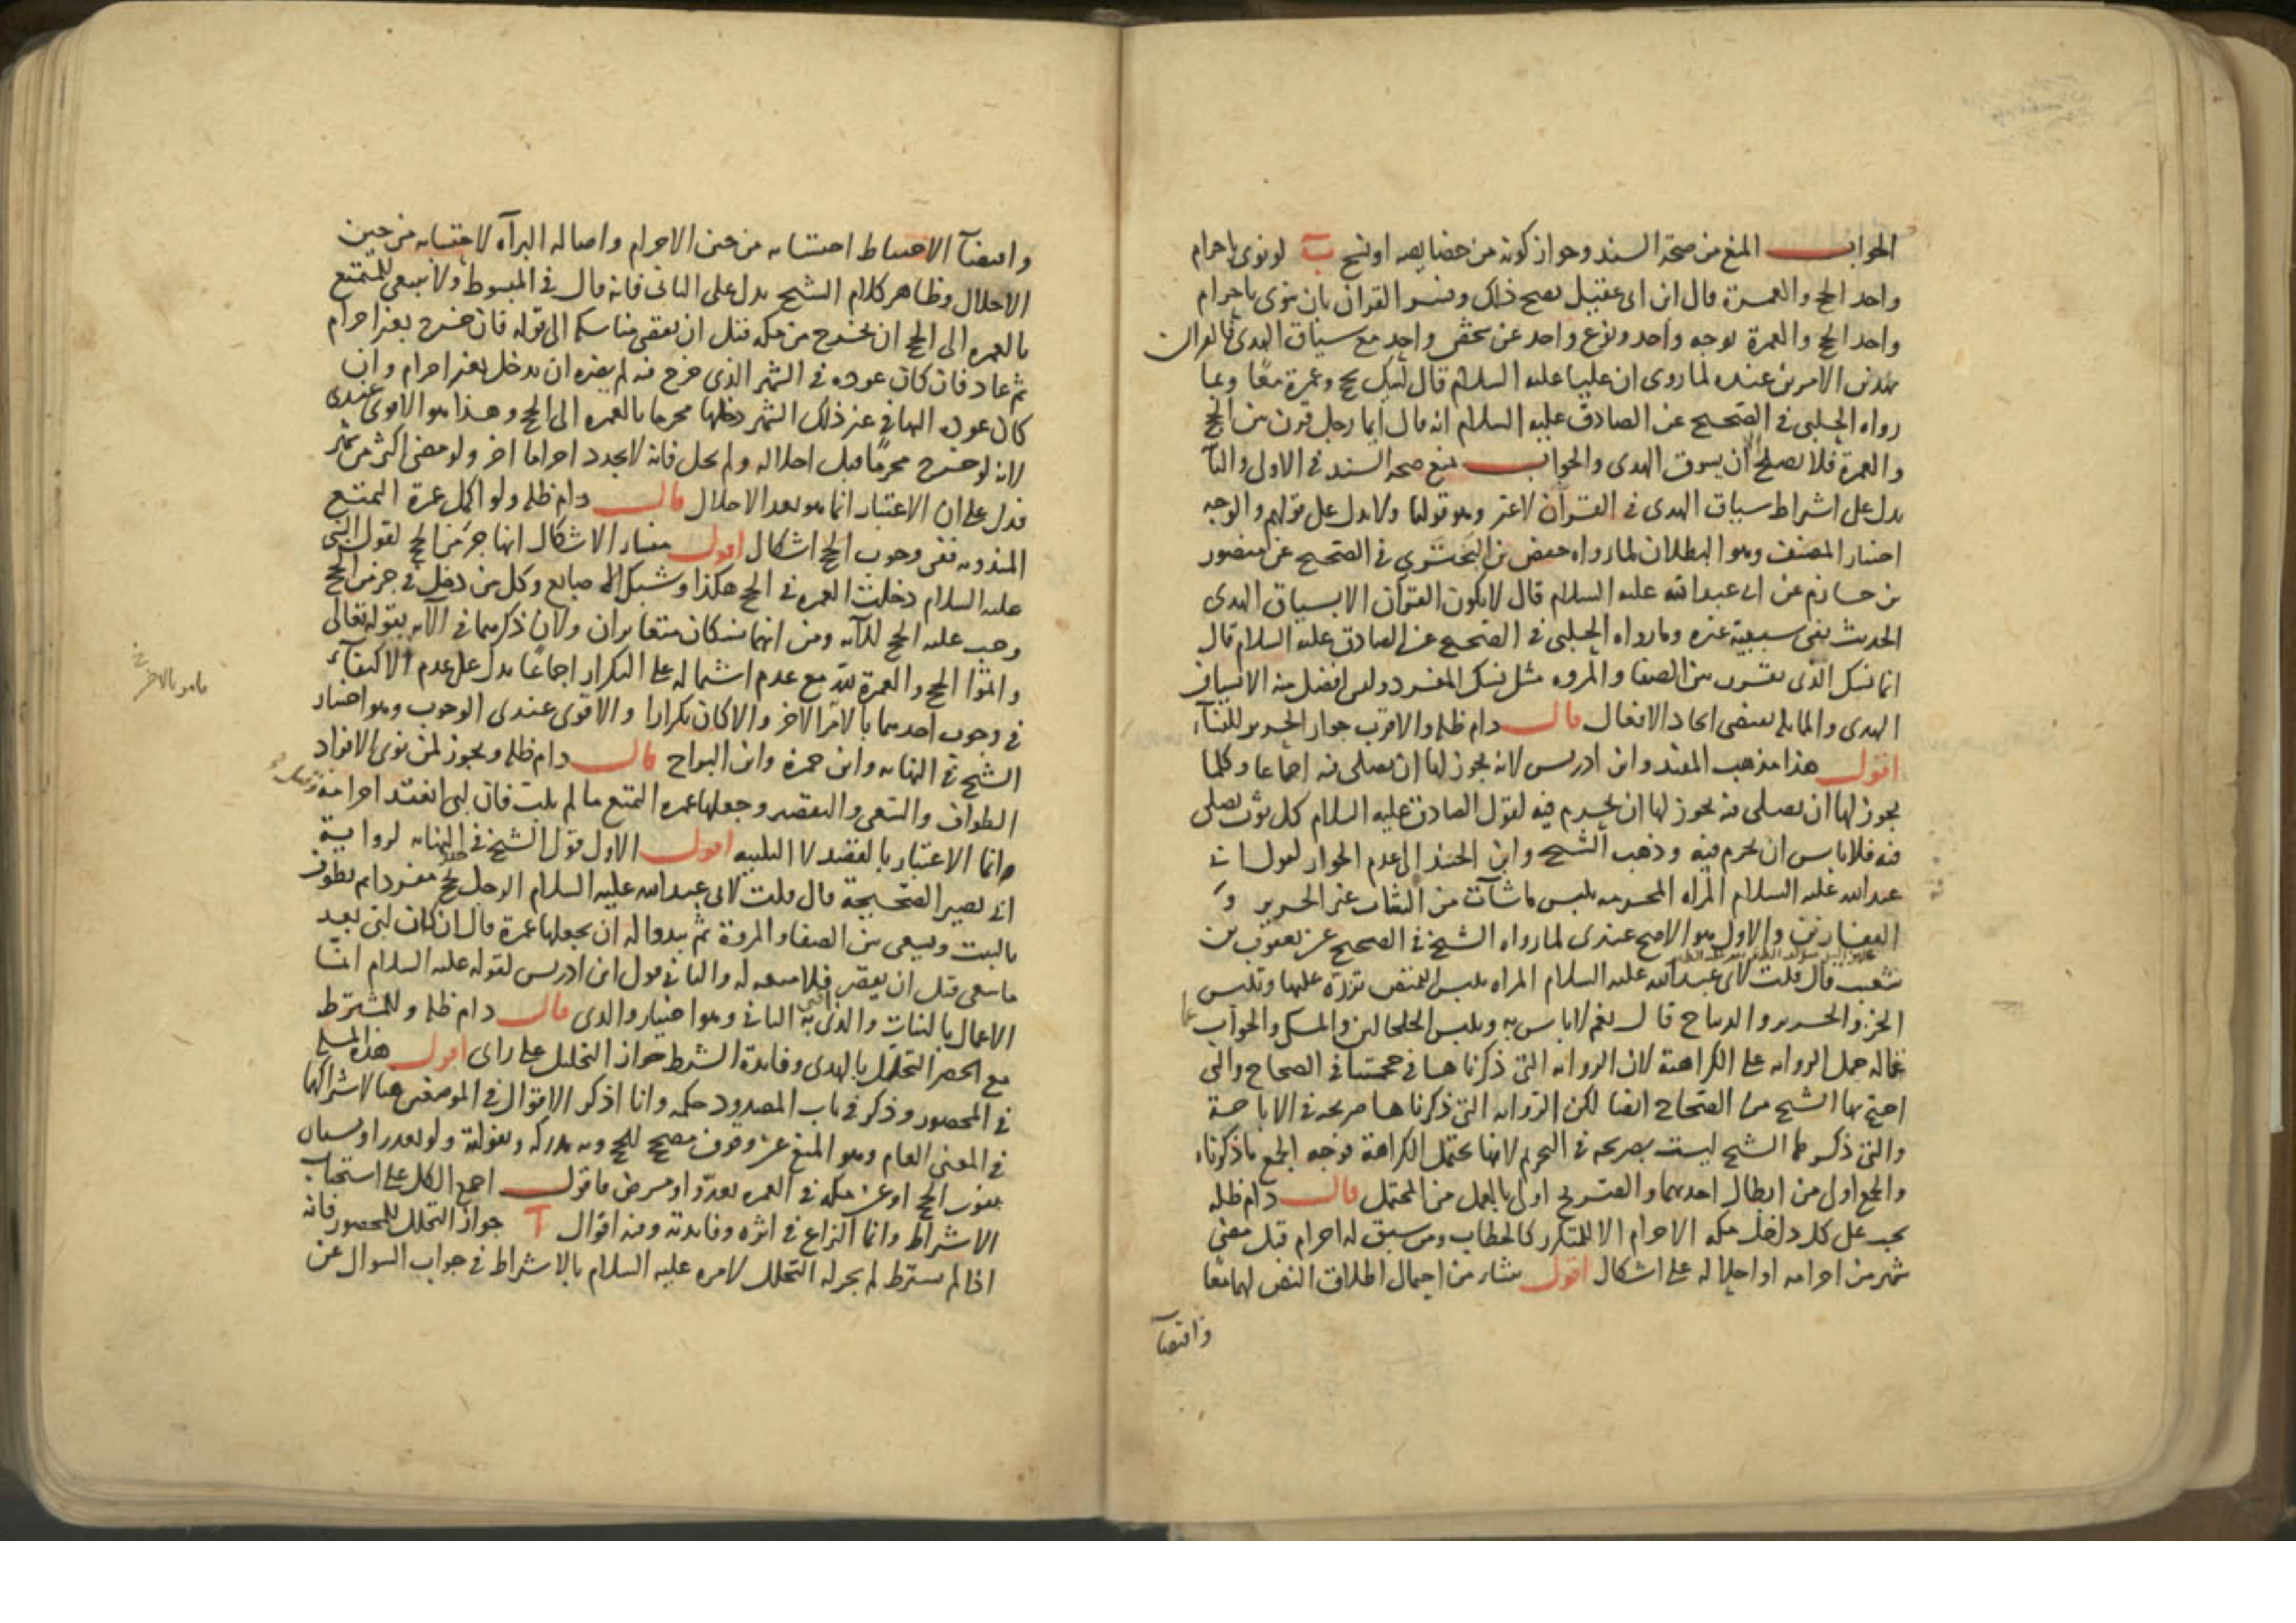 الجواب المنع من صحة السند وجواز كونه من خصايصه او نسخ ب لو نوى باحرام
واحد الحج والعمرة قال ابن ابى عقيل يصح ذلك وفسر القران بان ينوى باحرام
واحد الحج والعمرة لوجه واحد ونوع واحد عن شخص واحد مع سياق الهدى فالقران
بهذين الامرين عنده لما روى ان عليا عليه السلام قال لبيك بحج وعمرة معا وبما
رواه الحلبى فى الصحيح عن الصادق عليه السلام انه قال ايما رجل قرن بين الحج
والعمرة فلا يصلح الا ان يسوق الهدى والجواب منع صحة السند فى الاولى والثانية
يدل على اشتراط سياق الهدى فى القران لا غير وهو قولنا ولا يدل على قولهم والوجه
اختيار المصنف وهو البطلان لما رواه حفص بن البخترى فى الصحيح عن منصور
بن حازم عن ابى عبد الله عليه السلام قال لا يكون القران الا بسياق الهدى
الحديث نفى سببية غيره وما رواه الحلبى فى الصحيح عن الصادق عليه السلام قال
انما نسك الذى يقرن بين الصفا والمروه مثل نسك المفرد وليس افضل منه الا بسياق
الهدى والمماثلة تقتضى اتحاد الافعال قال دام ظله والاقرب جواز الحرير للنساء
اقول هذا مذهب المفيد وابن ادريس لانه يجوز لها ان تصلى فيه اجماعا وكلما
يجوز لها ان تصلى فيه يجوز لها ان تحرم فيه لقول الصادق عليه السلام كل ثوب يصلى
فيه فلا باس ان يحرم فيه وذهب الشيخ وابن الجنيد الى عدم الجواز لقول ابى
عبد الله عليه السلام المراه المحرمه تلبس ما شآءت من الثياب غير الحرير و
القفازين والاول هو الاصح عندى لما رواه الشيخ فى الصحيح عن يعقوب بن
شعيب قال قلت لابى عبد الله عليه السلام المراه تلبس القميص تزره عليها وتلبس
الخز والحرير والديباج قال نعم لا باس به وتلبس الخلخالين والمسك والجواب عما
قاله حمل الروايه على الكراهة لان الروايه التى ذكرناها فى حجتنا فى الصحاح والتى
احتج بها الشيخ من الصحاح ايضا لكن الروايه التى ذكرناها صريحه فى الاباحة
والتى ذكرها الشيخ ليست بصريحه فى التحريم لانها تحتمل الكراهة فوجه الجمع ما ذكرناه
والجمع اولى من ابطال احدهما والصريح اولى بالعمل من المحتمل قال دام ظله
يجب على كل داخل مكه الاحرام الا المتكرر كالحطاب ومن سبق له احرام قبل مضى
شهر من احرامه او احلاله على اشكال اقول ينشأ من احتمال اطلاق النص لهما معا
واقتضآ
واقتضآ الاحتياط احتسابه من حين الاحرام واصاله البرآه لاحتسابه من حين
الاحلال وظاهر كلام الشيخ يدل على الثانى فانه قال فى المبسوط ولا ينبغى للمتمتع
بالعمره الى الحج ان يخرج من مكه قبل ان يقضى مناسكه الى قوله فان خرج بغير احرام
ثم عاد فان كان عوده فى الشهر الذى خرج فيه لم يضره ان يدخل بغير احرام وان
كان عوده اليها فى غير ذلك الشهر دخلها محرما بالعمره الى الحج وهذا هو الاقوى عندى
لانه لو خرج محرما قبل احلاله ولم يحل فانه لا يجدد احراما اخر ولو مضى اكثر من شهر
فدل على ان الاعتبار انما هو بعد الاحلال قال دام ظله ولو اكمل عمرة التمتع
المندوبه ففى وجوب الحج اشكال اقول منشأ الاشكال انها جزء من الحج لقول النبى
عليه السلام دخلت العمره فى الحج هكذا وشبك الاصابع وكل من دخل فى جزء من الحج
وجب عليه الحج للآيه ومن انهما نسكان متغايران ولان ذكرهما فى الآيه بقوله تعالى
واتموا الحج والعمرة لله مع عدم اشتماله على التكرار اجماعا يدل على عدم الاكتفآء
فى وجوب احدهما بالامر الاخر والا كان تكرارا والاقوى عندى الوجوب وهو اختيار
الشيخ فى النهايه وابن حمزة وابن البراج قال دام ظله ويجوز لمن نوى الافراد
الطواف والسعى والتقصير وجعلها عمره التمتع ما لم يلب فان لبى انعقد احرامه
وانما الاعتبار بالقصد لا التلبيه اقول الاول قول الشيخ فى النهايه لرواية
ابى بصير الصحيحة قال قلت لابى عبد الله عليه السلام الرجل يحج مفردا ثم يطوف
بالبيت ويسعى بين الصفا والمروة ثم يبدو له ان يجعلها عمرة قال ان كان لبى بعد
ما سعى قبل ان يقصر فلا متعه له والثانى قول ابن ادريس لقوله عليه السلام انما
الاعمال بالنيات والذى به افتى الثانى وهو اختيار والدى قال دام ظله وللمشترط
مع الحصر التحلل بالهدى وفايدة الشرط جواز التحلل على راى اقول هذه المسئلة
فى المحصور وذكر فى باب المصدود حكمه وانا اذكر الاقوال فى الموضعين هنا لاشتراكهما
فى المعنى العام وهو المنع عن وقوف مصحح للحج
الاشتراط وانما النزاع فى اثره وفايدته وفيه اقوال آ جواز التحلل للمحصور فانه
اذا لم يشترط لم يجز له التحلل لامره عليه السلام بالاشتراط فى جواب السوال عن